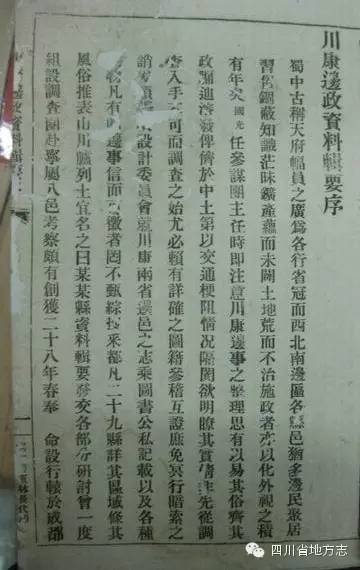 川康邊政資料輯要序
蜀中古稱天府幅員之廣爲各行省冠而西北南邊區各縣邑猶多邊民聚居
習俗錮蔽知識茫昧鑛產蘊而未闢土地荒而不治施政者亦以化外視之積
有年矣國光任參謀團主任時即注意川康邊事之整理思有以易其俗齊其
政瀰迪濬發俾儕於中土第以交通梗阻情況隔閡欲明瞭其實情非先從調
查入手不可而調查之始尤必賴有詳確之圖籍參稽互證庶免冥行暗索之
設計委員會就川康兩省邊邑之志乘圖書公私記載以及各種
凡有關邊事信而可徵者罔不甄綜採都凡二十九縣詳其區域條其
風俗推表山川臚列土宜名之曰某某縣資料輯要發交各部分研討會一度
組設調查團赴寧屬八邑考察頗有創獲二十八年春奉 命設行轅於成都
四川省地方志